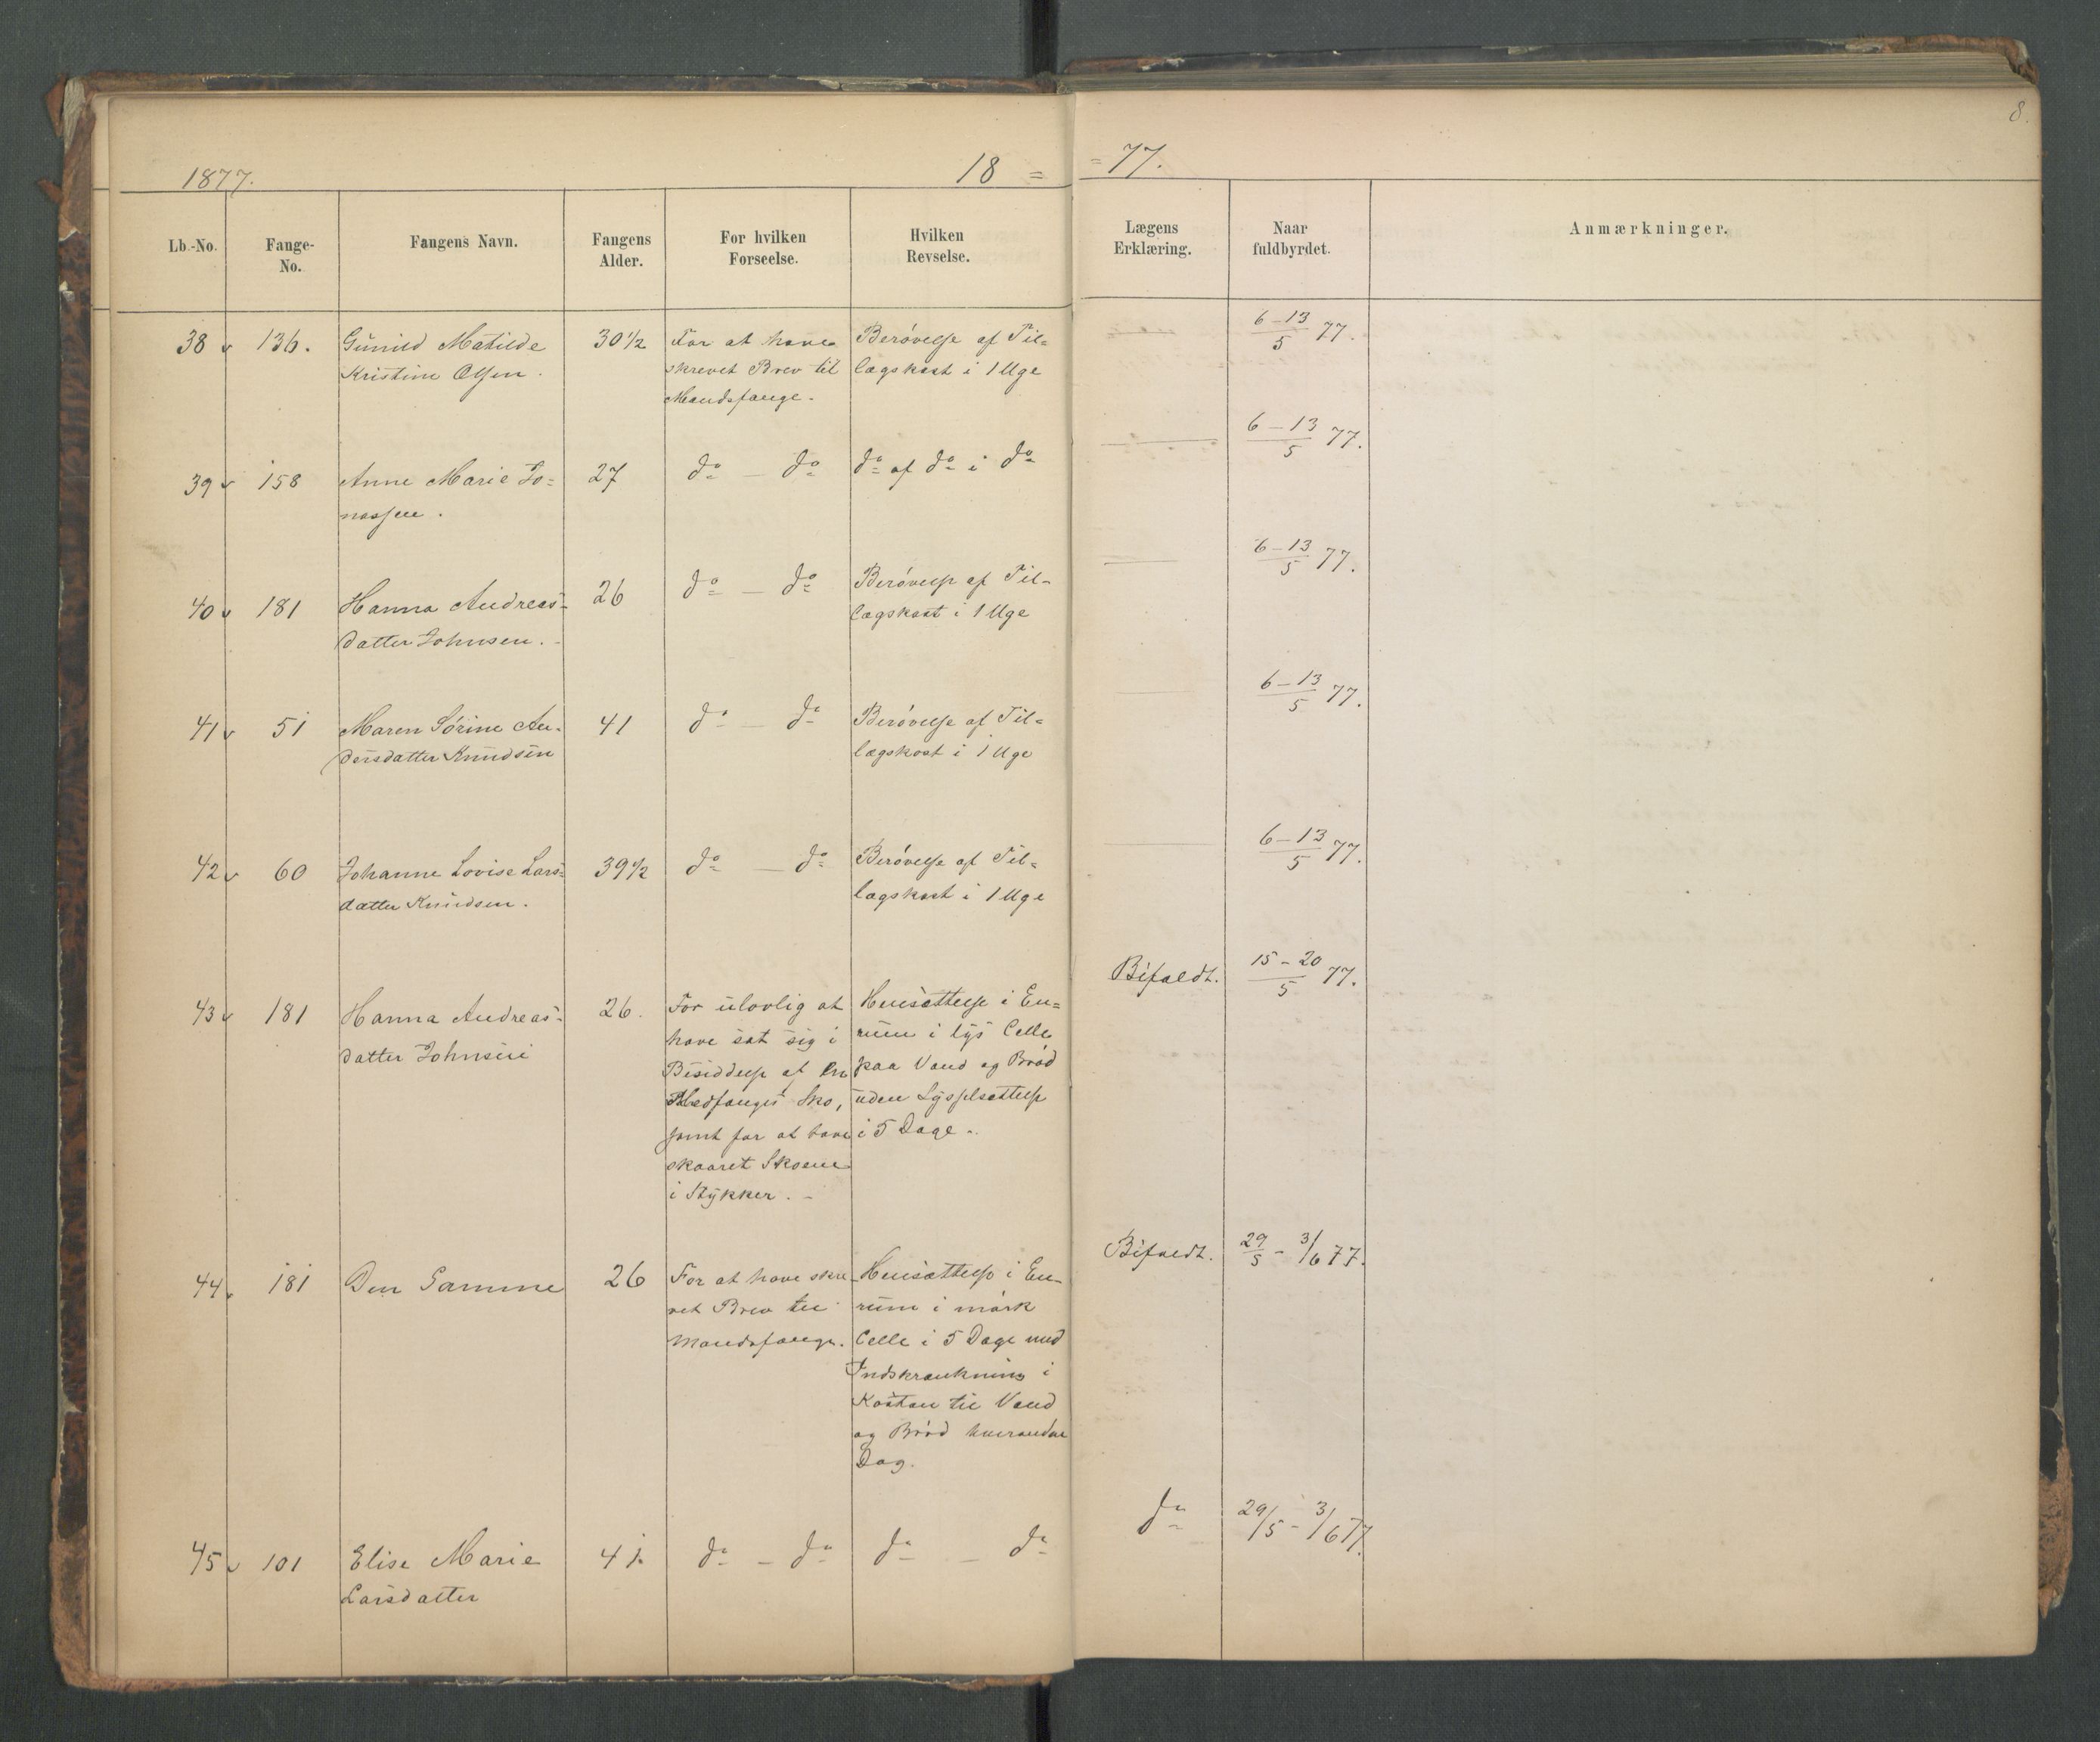 8.
1877. 18 =
= 77.
Lb.-No. Fange-No. Fangens Navn. Fangens Alder. For hvilken Forseelse. Hvilken Revselse. Lægens Erklæring. Naar fuldbyrdet. Anmærkninger.
38 v 136. Gunild Matilde 30 1/2 For at have Berøvelse af Til= — 6–13/5 77.
Kristine Olsen. skrevet Brev til lægskost i 1 Uge
Mandsfange.
39 v 158 Anne Marie Jo= 27 do — do do af do i do — 6–13/5 77.
nassen.
40 v 181 Hanna Andreas= 26 do — do Berøvelse af Til= — 6–13/5 77.
datter Johnsen. lægskost i 1 Uge
41 v 51 Maren Sørine An= 41 do — do Berøvelse af Til= — 6–13/5 77.
dersdatter Knudsen lægskost i 1 Uge
42 v 60 Johanne Lovise Lars= 39 1/2 do — do Berøvelse af Til= — 6–13/5 77.
datter Knudsen. lægskost i 1 Uge
43 v 181 Hanna Andreas= 26. For ulovlig at Hensættelse i En= Bifaldt. 15–20/5 77.
datter Johnsen have sat sig i rum i lys Celle
Besiddelse af en paa Vand og Brød
Medfanges Sko, uden Sysselsættelse
samt for at have i 5 Dage.
skaaret Skoene
i Stykker.
44 v 181 Den Samme 26 For at have skre= Hensættelse i En= Bifaldt. 29/5 – 3/6 77.
vet Brev til rum i mørk
Mandsfange. Celle i 5 Dage med
Indskrænkning i
Kosten til Vand
og Brød hverandre
Dag.
45 v 101 Elise Marie 41. do — do do — do do 29/5 – 3/6 77.
Larsdatter